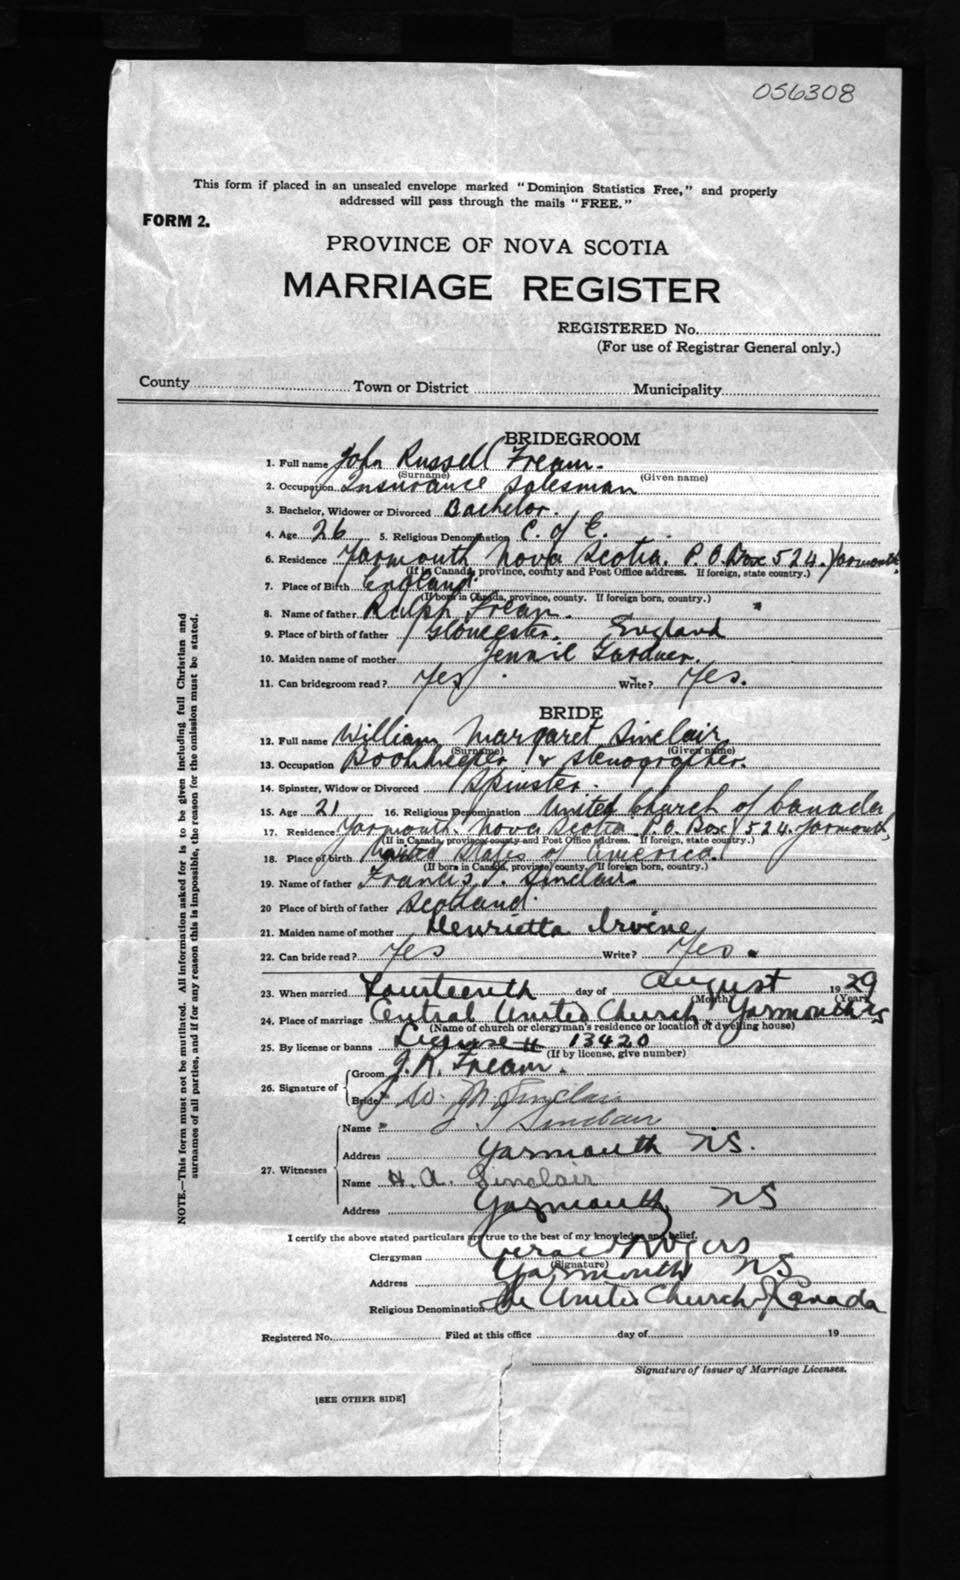 056308
This form if placed in an unsealed envelope marked "Dominion Statistics Free," and properly
addressed will pass through the mails "FREE."
FORM 2.
PROVINCE OF NOVA SCOTIA
MARRIAGE REGISTER
REGISTERED No.
(For use of Registrar General only.)
County Town or District Municipality
BRIDEGROOM
1. Full name John Russell Fream.
(Surname) (Given name)
2. Occupation Insurance Salesman
3. Bachelor, Widower or Divorced Bachelor.
4. Age 26 5. Religious Denomination C. of E.
6. Residence Yarmouth Nova Scotia. P.O. Box 524. Yarmouth
(If in Canada, province, county and Post Office address. If foreign, state country.)
7. Place of Birth England.
(If born in Canada, province, county. If foreign born, country.)
8. Name of father Ralph Fream.
9. Place of birth of father Gloucester. England
10. Maiden name of mother Jennie Gardner.
11. Can bridegroom read? Yes Write? Yes.
BRIDE
12. Full name William Margaret Sinclair
(Surname) (Given name)
13. Occupation Bookkeeper & Stenographer.
14. Spinster, Widow or Divorced Spinster.
15. Age 21 16. Religious Denomination United Church of Canada
17. Residence Yarmouth. Nova Scotia P.O. Box 524. Yarmouth,
(If in Canada, province, county and Post Office address. If foreign, state country.)
18. Place of birth United States of America.
(If born in Canada, province, county. If foreign born, country.)
19. Name of father Francis Sinclair.
20 Place of birth of father Scotland.
21. Maiden name of mother Henrietta Irvine
22. Can bride read? Yes Write? Yes.
23. When married Fourteenth day of August 1929
(Month) (Year)
24. Place of marriage Central United Church, Yarmouth NS
(Name of church or clergyman's residence or location of dwelling house)
25. By license or banns License # 13420
(If by license, give number)
26. Signature of Groom J. R. Fream.
Bride W. M. Sinclair
27. Witnesses Name Sinclair
Address Yarmouth NS.
Name H. A. Sinclair
Address Yarmouth NS
I certify the above stated particulars are true to the best of my knowledge and belief.
Clergyman Rogers
(Signature)
Address Yarmouth NS
Religious Denomination The United Church of Canada
Registered No. Filed at this office day of 19
Signature of Issuer of Marriage Licenses.
[SEE OTHER SIDE]
NOTE.—This form must not be mutilated. All information asked for is to be given including full Christian and
surnames of all parties, and if for any reason this is impossible, the reason for the omission must be stated.